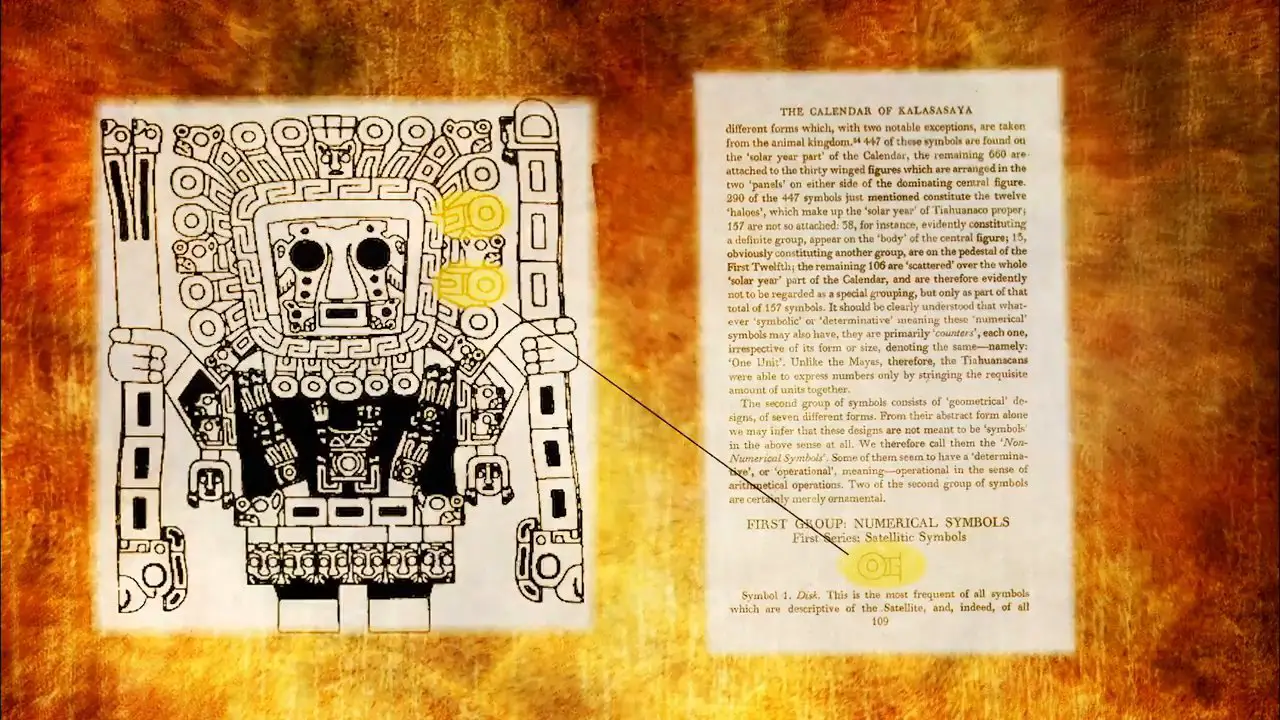 THE CALENDAR OF KALASASAYA
different forms which, with two notable exceptions, are taken
from the animal kingdom.²⁴ 447 of these symbols are found on
the 'solar year part' of the Calendar, the remaining 660 are
attached to the thirty winged figures which are arranged in the
two 'panels' on either side of the dominating central figure.
290 of the 447 symbols just mentioned constitute the twelve
'haloes', which make up the 'solar year' of Tiahuanaco proper;
157 are not so attached: 38, for instance, evidently constituting
a definite group, appear on the 'body' of the central figure; 13,
obviously constituting another group, are on the pedestal of the
First Twelfth; the remaining 106 are 'scattered' over the whole
'solar year' part of the Calendar, and are therefore evidently
not to be regarded as a special grouping, but only as part of that
total of 157 symbols. It should be clearly understood that what-
ever 'symbolic' or 'determinative' meaning these 'numerical'
symbols may also have, they are primarily 'counters', each one,
irrespective of its form or size, denoting the same—namely:
'One Unit'. Unlike the Mayas, therefore, the Tiahuanacans
were able to express numbers only by stringing the requisite
amount of units together.
The second group of symbols consists of 'geometrical' de-
signs, of seven different forms. From their abstract form alone
we may infer that these designs are not meant to be 'symbols'
in the above sense at all. We therefore call them the 'Non-
Numerical Symbols'. Some of them seem to have a 'determina-
tive', or 'operational', meaning—operational in the sense of
arithmetical operations. Two of the second group of symbols
are certainly merely ornamental.
FIRST GROUP: NUMERICAL SYMBOLS
First Series: Satellitic Symbols
Symbol 1. Disk. This is the most frequent of all symbols
which are descriptive of the Satellite, and, indeed, of all
109